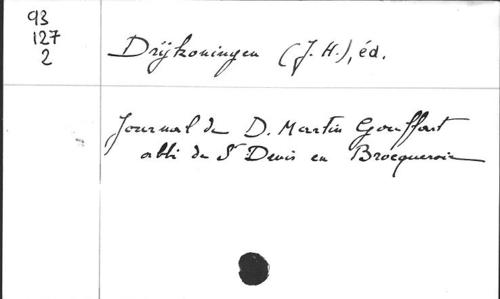 93
127
2
Drijkoningen (J. H.), éd.
Journal de D. Martin Gouffart
abbé de St Denis en Brocqueroie